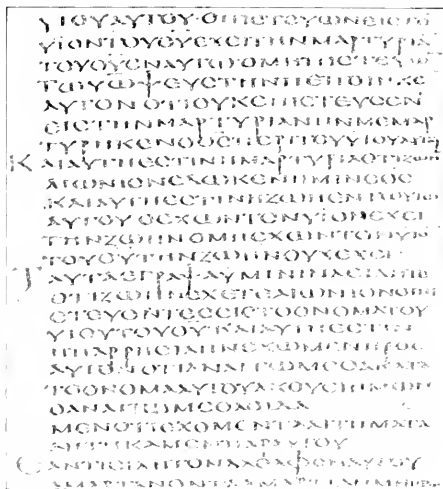 ΥΙΟΥΑΥΤΟΥ·ΟΠΙϹΤΕΥΩΝΕΙϹΤΟ
ΥΙΟΝΤΟΥΘΥΕΧΕΙΤΗΝΜΑΡΤΥΡΙΑ
ΤΟΥΘΥΕΝΑΥΤΩΟΜΗΠΙϹΤΕΥΩ
ΤΩΥΩΨΕΥϹΤΗΝΠΕΠΟΙΗΚΕ
ΑΥΤΟΝΟΤΙΟΥΚΕΠΙϹΤΕΥϹΕΝ
ΕΙϹΤΗΝΜΑΡΤΥΡΙΑΝΗΝΜΕΜΑΡ
ΤΥΡΗΚΕΝΟΘϹΠΕΡΙΤΟΥΥΙΟΥΑΥΤΟΥ
ΚΑΙΑΥΤΗΕϹΤΙΝΗΜΑΡΤΥΡΙΑΟΤΙΖΩΗΝ
ΑΙΩΝΙΟΝΕΔΩΚΕΝΗΜΙΝΟΘϹ
ΚΑΙΑΥΤΗΕϹΤΙΝΗΖΩΗΕΝΤΩΥΙΩ
ΑΥΤΟΥΟΕΧΩΝΤΟΝΥΙΟΝΕΧΕΙ
ΤΗΝΖΩΗΝΟΜΗΕΧΩΝΤΟΝΥΙΟΝ
ΤΟΥΘΥΤΗΝΖΩΗΝΟΥΚΕΧΕΙ
ΤΑΥΤΑΕΓΡΑΨΑΥΜΙΝΙΝΑΕΙΔΗΤΕ
ΟΤΙΖΩΗΝΕΧΕΤΕΑΙΩΝΙΟΝΟΙΠΙ
ϹΤΕΥΟΝΤΕϹΕΙϹΤΟΟΝΟΜΑΤΟΥ
ΥΙΟΥΤΟΥΘΥΚΑΙΑΥΤΗΕϹΤΙΝ
ΗΠΑΡΡΗϹΙΑΗΝΕΧΩΜΕΝΠΡΟϹ
ΑΥΤΟΝΟΤΙΑΝΑΙΤΩΜΕΘΑΚΑΤΑ
ΤΟΟΝΟΜΑΑΥΤΟΥΑΚΟΥΕΙΗΜΩΝ
ΟΑΝΑΙΤΩΜΕΘΑΟΙΔΑ
ΜΕΝΟΤΙΕΧΟΜΕΝΤΑΑΙΤΗΜΑΤΑ
ΑΗΤΗΚΑΜΕΝΠΑΡΑΥΤΟΥ
ΕΑΝΤΙϹΙΔΗΤΟΝΑΔΕΛΦΟΝΑΥΤΟΥ
ΑΜΑΡΤΑΝΟΝΤΑΑΜΑΡΤΙΑΝΜΗΠΡΟϹ